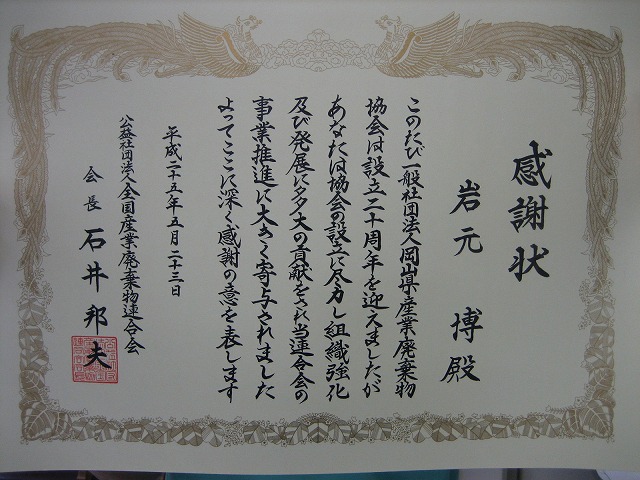 感謝状
岩元 博殿
このたび一般社団法人岡山県産業廃棄物
協会は設立二十周年を迎えましたが
あなたは協会の設立に尽力し組織強化
及び発展に多大の貢献をされ当連合会の
事業推進に大きく寄与されました
よってここに深く感謝の意を表します
平成二十五年五月二十三日
公益社団法人全国産業廃棄物連合会
会長 石井邦夫